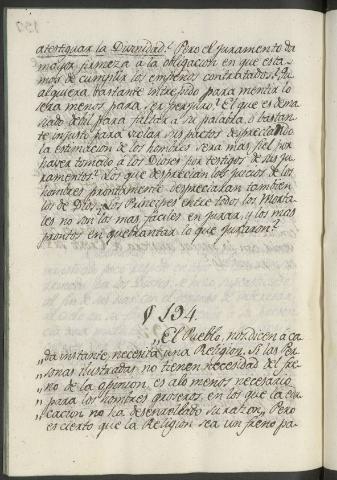 atestiguar la Divinidad? Pero el juramento da
mayor firmeza á la obligacion en que esta-
mos de cumplir los empeños contratados?
alquiera bastante intrepido para mentir lo
sera menos para ser perjuro? El que es dema-
siado debil para faltar á su palabra, ó bastan-
te injusto para violar sus pactos despreciando
la estimacion de los hombres sera mas fiel por
haver tomado á los Dioses por testigos de sus ju-
ramentos? Los que desprecian los juicios de los
hombres prontamente despreciaran tambien
los de Dios. Los Principes entre todos los Morta-
les no son los mas faciles en jurar, y los mas
prontos en quebrantar lo que juraron?
§ 194.
„El Pueblo, nos dicen á ca-
„da instante, necesita una Religion. Si las Per-
„sonas ilustradas no tienen necesidad del fre-
„no de la opinion, es alo menos necesario
„para los hombres groseros, en los que la edu-
„cacion no ha desenrollado su razon„ Pero
es cierto que la Religion sea un freno pa-